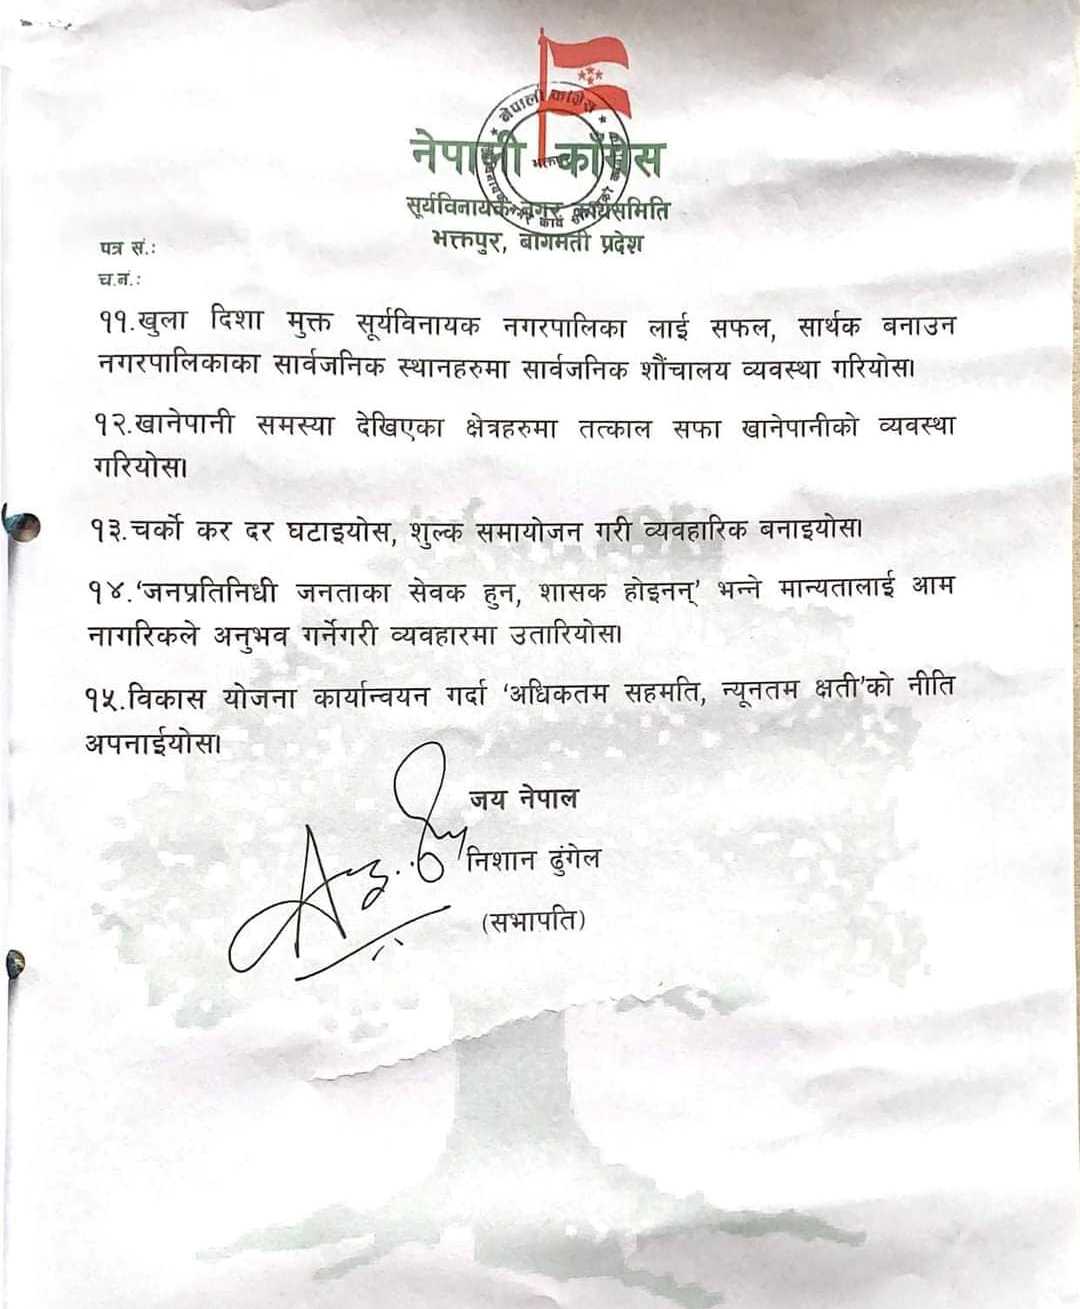 नेपाली काँग्रेस
सूर्यविनायक नगर कार्यसमिति
भक्तपुर, बागमती प्रदेश
पत्र सं.:
च.नं.:
११.खुला दिशा मुक्त सूर्यविनायक नगरपालिका लाई सफल, सार्थक बनाउन
नगरपालिकाका सार्वजनिक स्थानहरुमा सार्वजनिक शौंचालय व्यवस्था गरियोस।
१२.खानेपानी समस्या देखिएका क्षेत्रहरुमा तत्काल सफा खानेपानीको व्यवस्था
गरियोस।
१३.चर्को कर दर घटाइयोस, शुल्क समायोजन गरी व्यवहारिक बनाइयोस।
१४.‘जनप्रतिनिधी जनताका सेवक हुन, शासक होइनन्’ भन्ने मान्यतालाई आम
नागरिकले अनुभव गर्नेगरी व्यवहारमा उतारियोस।
१५.विकास योजना कार्यान्वयन गर्दा ‘अधिकतम सहमति, न्यूनतम क्षती’को नीति
अपनाईयोस।
जय नेपाल
निशान ढुंगेल
(सभापति)